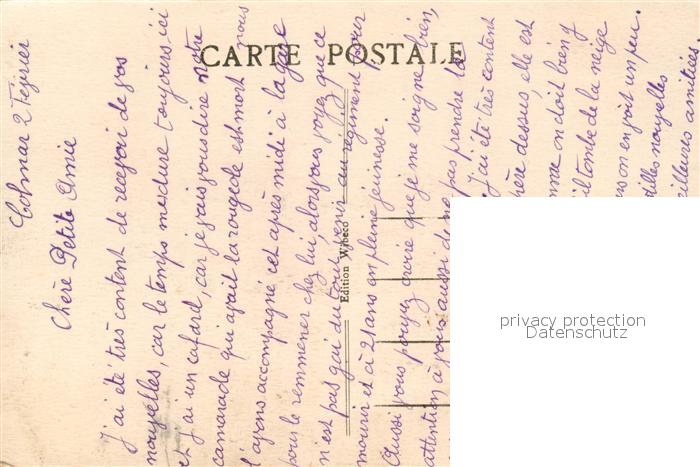 CARTE POSTALE
Edition Wibeco
Colmar 2 Février
Chère Petite Amie
J'ai été très content de recevoir de vos
nouvelles, car le temps me dure toujours ici
et j'ai un cafard, car je vais vous dire notre
camarade qui avait la rougeole est mort nous
l'avons accompagné cet après midi à la gare
pour le remmener chez lui, alors vous voyez que ce
n'est pas gai du tout, venir au régiment pour
mourir et à 21 ans en pleine jeunesse.
Aussi vous pouvez croire que je me soigne bien,
attention à vous aussi de ne pas prendre la
J'ai été très content
père dessus, elle est
on doit bien y
il tombe de la neige
on en voit un peu.
nouvelles
meilleures amitiés.
privacy protection
Datenschutz